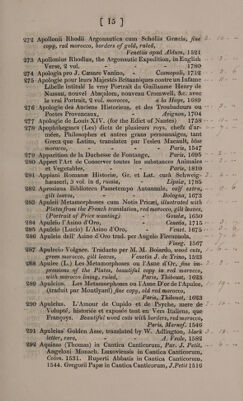 [ 15 ]
272 Apollonii Rhodii Argonautica cum Scholiis Græcis, fine
copy, red morocco, borders of gold, ruled,
Venetiis apud Aldum, 1521
273 Apollonius Rhodius, the Argonautic Expedition, in English
Verse, 2 vol. 1780
274 Apologia pro J. Cæsare Vanino, Cosmopoli, 1712
275 Apologie pour leurs Majestés Britanniques contre un Infame
Libelle intitulé le vray Portrait du Guillaume Henry de
Nassau, nouvel Absçalom, nouveau Cromwell, &c. avec
le vrai Portrait, 2 vol. morocco, a la Haye, 1689
276 Apologie des Anciens Historiens, et des Troubadours ou
Poetes Provencaux, Avignon, 1704
277 Apologie de Louis XIV. (for the Edict of Nantes) 1758
278 Apophthegmes (Les) dictz de plusieurs roys, chefz d'ar-
mées, Philosophes et autres grans personnaiges, tant
Grecs que Latins, translatez par l'esleu Macault, blue
morocco, Paris, 1547
279 Apparition de la Duchesse de Fontange, Paris, 1695
280 Appert l'Art de Conserver toutes les substances Animales
et Vegetables, Paris, 1810
281 Appiani Romanæ Historiæ, Gr. et Lat. curâ Schweig-
hæuseri, 3 vol. in 6, russia, Lipsiæ, 1785
282 Aprosiana Biblioteca Passetempo Autunnale, calf extra,
gilt leaves, Bologna, 1673
283 Apuleii Metamorphoses cum Notis Pricæi, illustrated with
Plates from the French translation, red morocco, gilt leaves,
(Portrait of Price wanting) Goudæ, 1650
284 Apuleio l'Asino d'Oro, Canozio, 1715
285 Apuleio (Lucio) L'Asino d'Oro, Vineg. 1675
286 Apuleio dell' Asino d'Oro trad. per Angelo Firenzuola,
Vineg. 1567
287 Apuleejo Volgare. Traidarto per M. M. Boiardo, wood cuts,
green morocco, gilt leaves, Venetia J. de Trino, 1523
288 Apulee (L.) Les Metamorphoses ou l'Asne d'Or, fine im-
pressions of the Plates, beautiful copy in red morocco,
with morocco lining, ruled, Paris, Thiboust, 1623
289 Apuleius. Les Metamorphoses ou l'Asne D'or de l'Apulee,
(traduit par Montlyard) fine copy, old red morocco,
Paris, Thiboust, 1623
290 Apuleius. L'Amour de Cupido et de Psyche, mere de
Volupté, historiée et exposée tant en Vers Italiens, que
Françoys. Beautiful wood cuts with borders, red morocco,
Paris, Marnef. 1546
291 Apuleius' Golden Asse, translated by W. Adlington, black
letter, rare, A. Veale, 1582
292 Aquinas (Thomas) in Cantica Canticorum, Par. J. Petit.
Angeloni Monach. Luxoviensis in Cantica Canticorum,
Colon. 1531. Ruperti Abbatis in Cantica Canticorum,
1544. Gregorii Papæ in Cantica Canticorum, J. Petit 1516